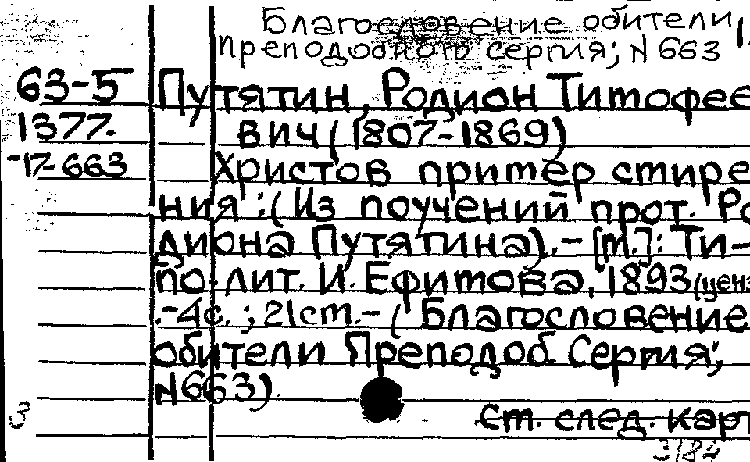 Благословение обители
преподобного Сергия; N 663
63-5 Путятин, Родион Тимофее
1377. вич (1807-1869)
-17-663 Христов пример стире
ния : (Из поучений прот. Ро
диона Путятина). - [М.]: Ти-
по-лит. И. Ефимова, 1893 (ценз
.-4с. ; 21cm. - ( Благословение
обители Преподоб. Сергия;
N663)
3 ст. след. карт
3184